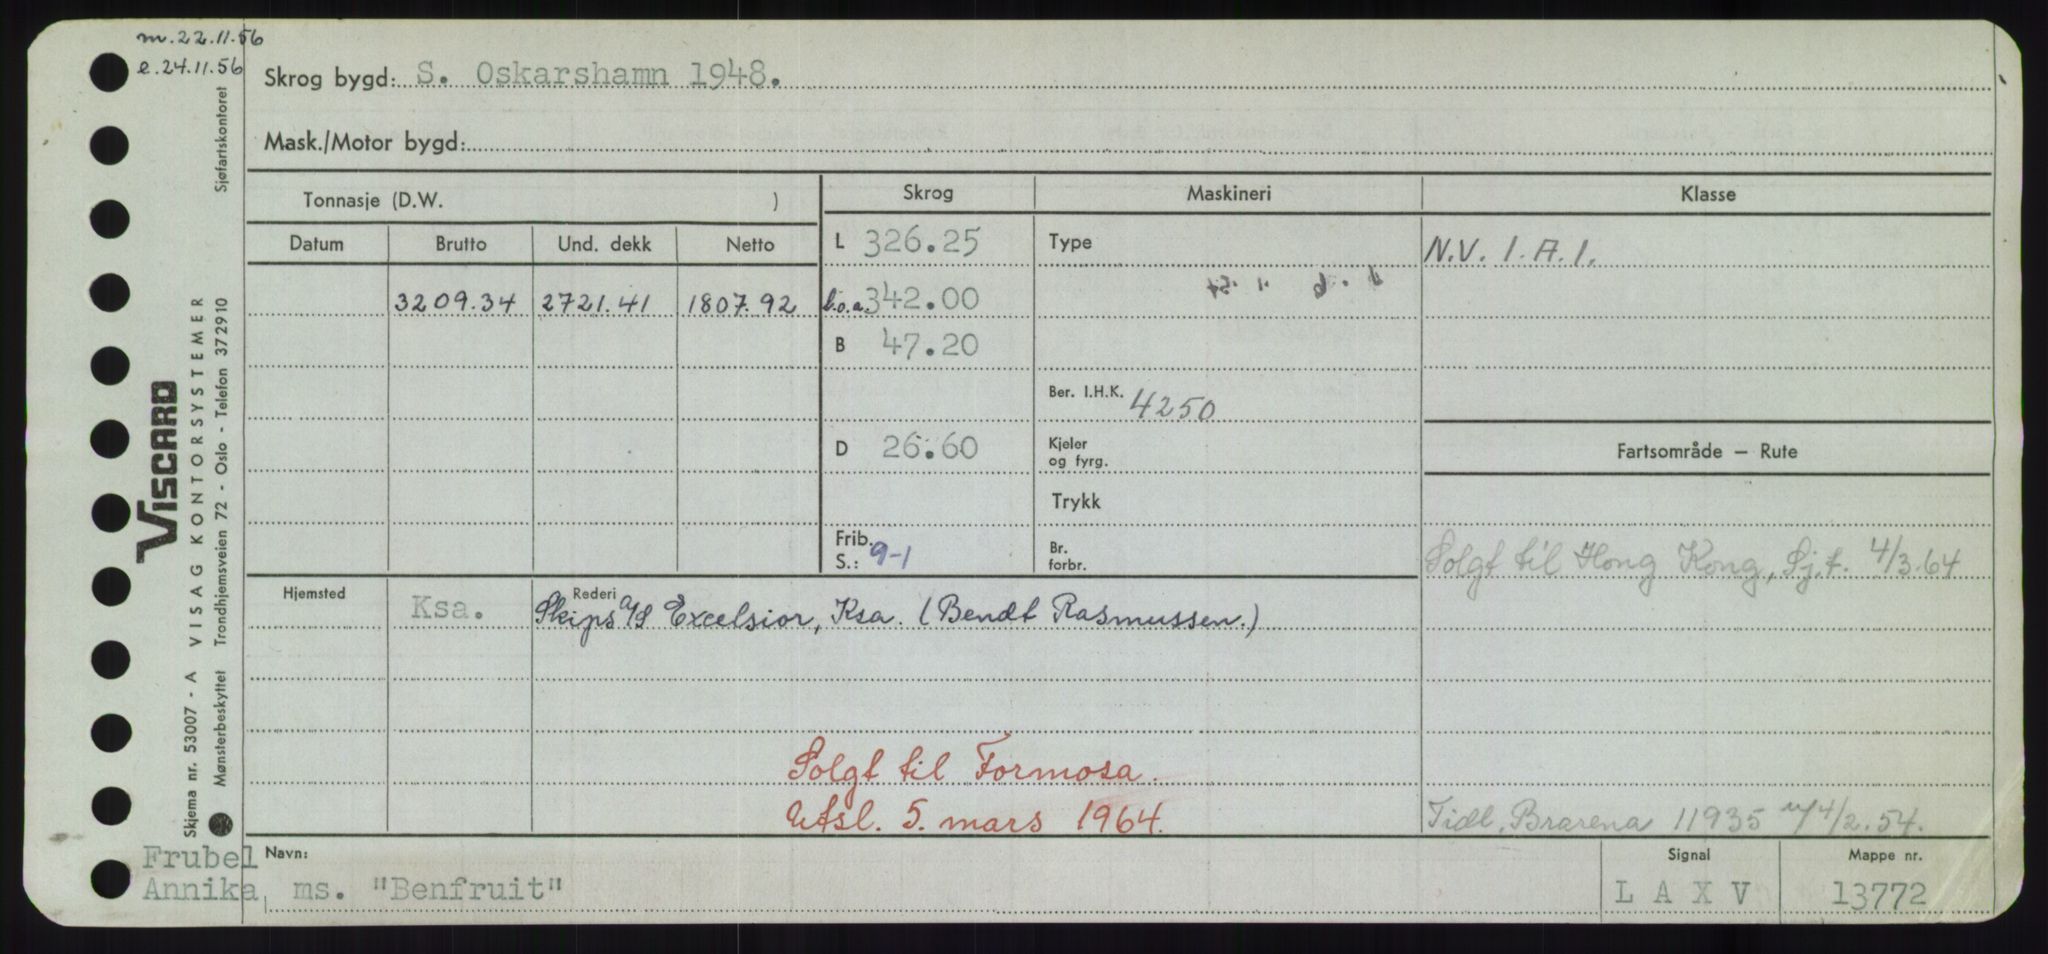 m.22.11.56
e.24.11.56
Skrog bygd: S. Oskarshamn 1948.
Mask./Motor bygd:
Tonnasje (D.W. )
Skrog Maskineri Klasse
Datum Brutto Und. dekk Netto
L 326.25 Type N.V. 1.A.1.
3209.34 2721.41 1807.92 l.o.a. 342.00
B 47.20
Ber. I.H.K. 4250
D 26.60 Kjeler og fyrg.
Fartsområde — Rute
Trykk
Frib. S.: 9-1 Br. forbr.
Solgt til Hong Kong, Sj.t. 4/3.64
Hjemsted Ksa. Rederi Skips A/S Excelsior, Ksa. (Bendt Rasmussen.)
Solgt til Formosa.
Utsl. 5. mars 1964.
Tidl. Brarena 11935 4/2.54.
Frubel
Navn: Signal Mappe nr.
Annika, ms. "Benfruit" L A X V 13772
Viscard
VISAG KONTORSYSTEMER
Skjema nr. 53007 - A
Mønsterbeskyttet Trondhjemsveien 72 - Oslo - Telefon 372910 Sjøfartskontoret